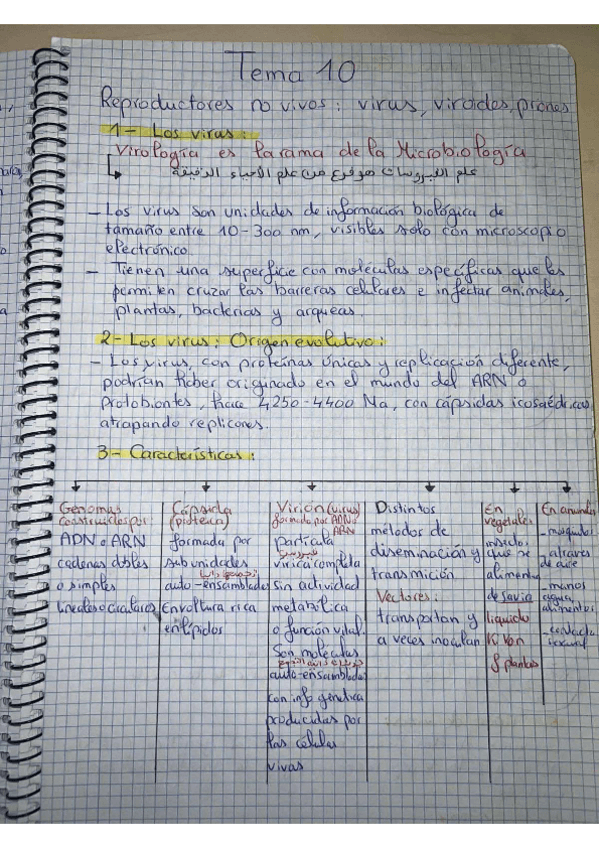 Tema 10
Reproductores no vivos: virus, viroides, priones
1- Los virus:
Virología es la rama de la Microbiología
علم الفيروسات هو فرع من علم الأحياء الدقيقة
- Los virus son unidades de información biológica de
tamaño entre 10-300 nm, visibles solo con microscopio
electrónico.
- Tienen una superficie con moléculas específicas que les
permiten cruzar las barreras celulares e infectar animales,
plantas, bacterias y arqueas.
2- Los virus: Origen evolutivo:
- Los virus, con proteínas únicas y replicación diferente,
podrían haber originado en el mundo del ARN o
protobiontes, hace 4250-4400 Ma, con cápsidas icosaédricas
atrapando replicones.
3- Características:
Genomas
construidos por
ADN o ARN
cadenas dobles
o simples
lineales o circulares
Cápsida
(proteica)
formada por
subunidades
auto-ensamblades
Envoltura rica
en lípidos
Virion (virus)
formado por ADN o
ARN
partícula
vírica completa
sin actividad
metabólica
o función vital.
Son moléculas
auto-ensamblades
con info genética
producidas por
las células
vivas
Distintos
métodos de
diseminación y
transmición.
Vectores:
transportan y
a veces inoculan
En
vegetales
insectos
que se
alimentan
de savia
liquido
plantas
En animales
- mosquitos
- a traves
de aire
- manos
agua,
alimentos
- contacto
sexual